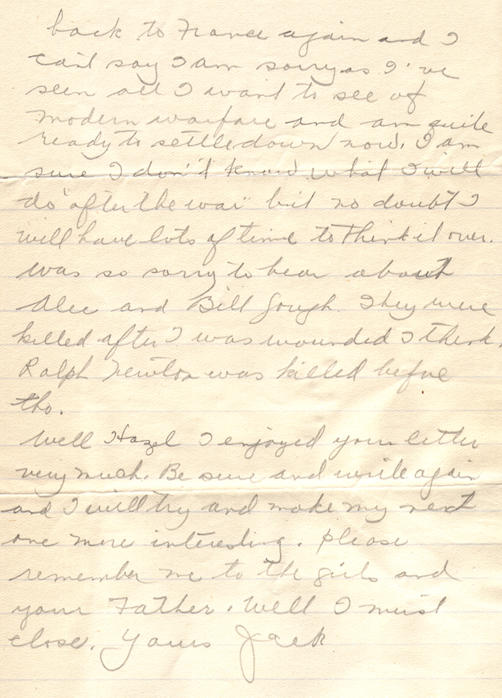 back to France again and I
can't say I am sorry as I've
seen all I want to see of
modern warfare and am quite
ready to settle down now. I am
sure I don't know what I will
do "after the war" but no doubt I
will have lots of time to think it over.
Was so sorry to hear about
Alec and Bill Gough. They were
killed after I was wounded I think.
Ralph Newton was killed before
tho.
Well Hazel I enjoyed your letter
very much. Be sure and write again
and I will try and make my next
one more interesting. Please
remember me to the girls and
your Father. Well I must
close. Yours Jack